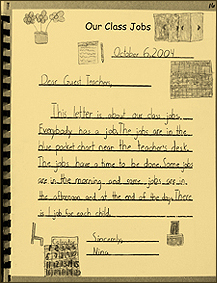 Our Class Jobs
October 6, 2004
Dear Guest Teachers,
This letter is about our class jobs.
Everybody has a job. The jobs are in the
blue pocket chart near the teacher's desk.
The jobs have a time to be done. Some jobs
are in the morning and some jobs are in
the afternoon and at the end of the day. There
is 1 job for each child.
Sincerely,
Nina